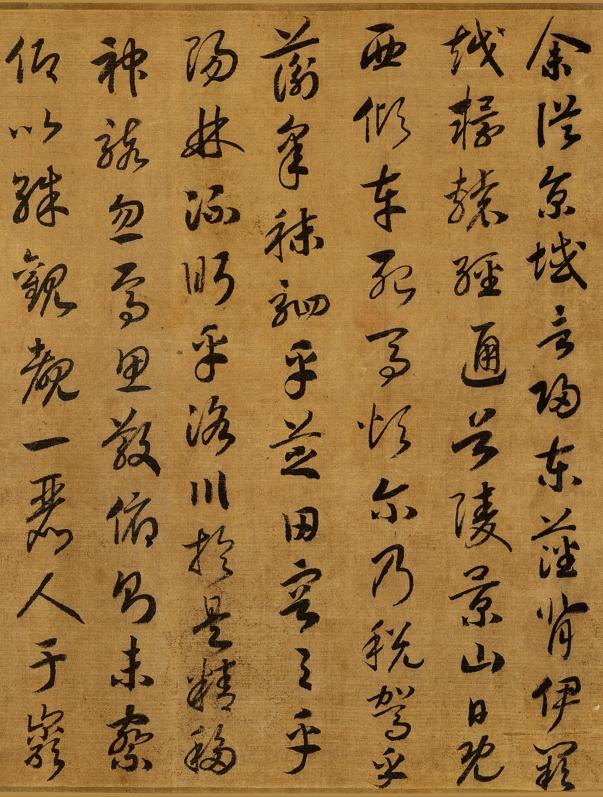 余從京域言歸東藩背伊闕
越轘轅經通谷陵景山日既
西傾車殆馬煩尔乃稅駕乎
蘅皋秣駟乎芝田容与乎
陽林流眄乎洛川於是精移
神駭忽焉思散俯則未察
仰以殊觀覩一麗人于巖